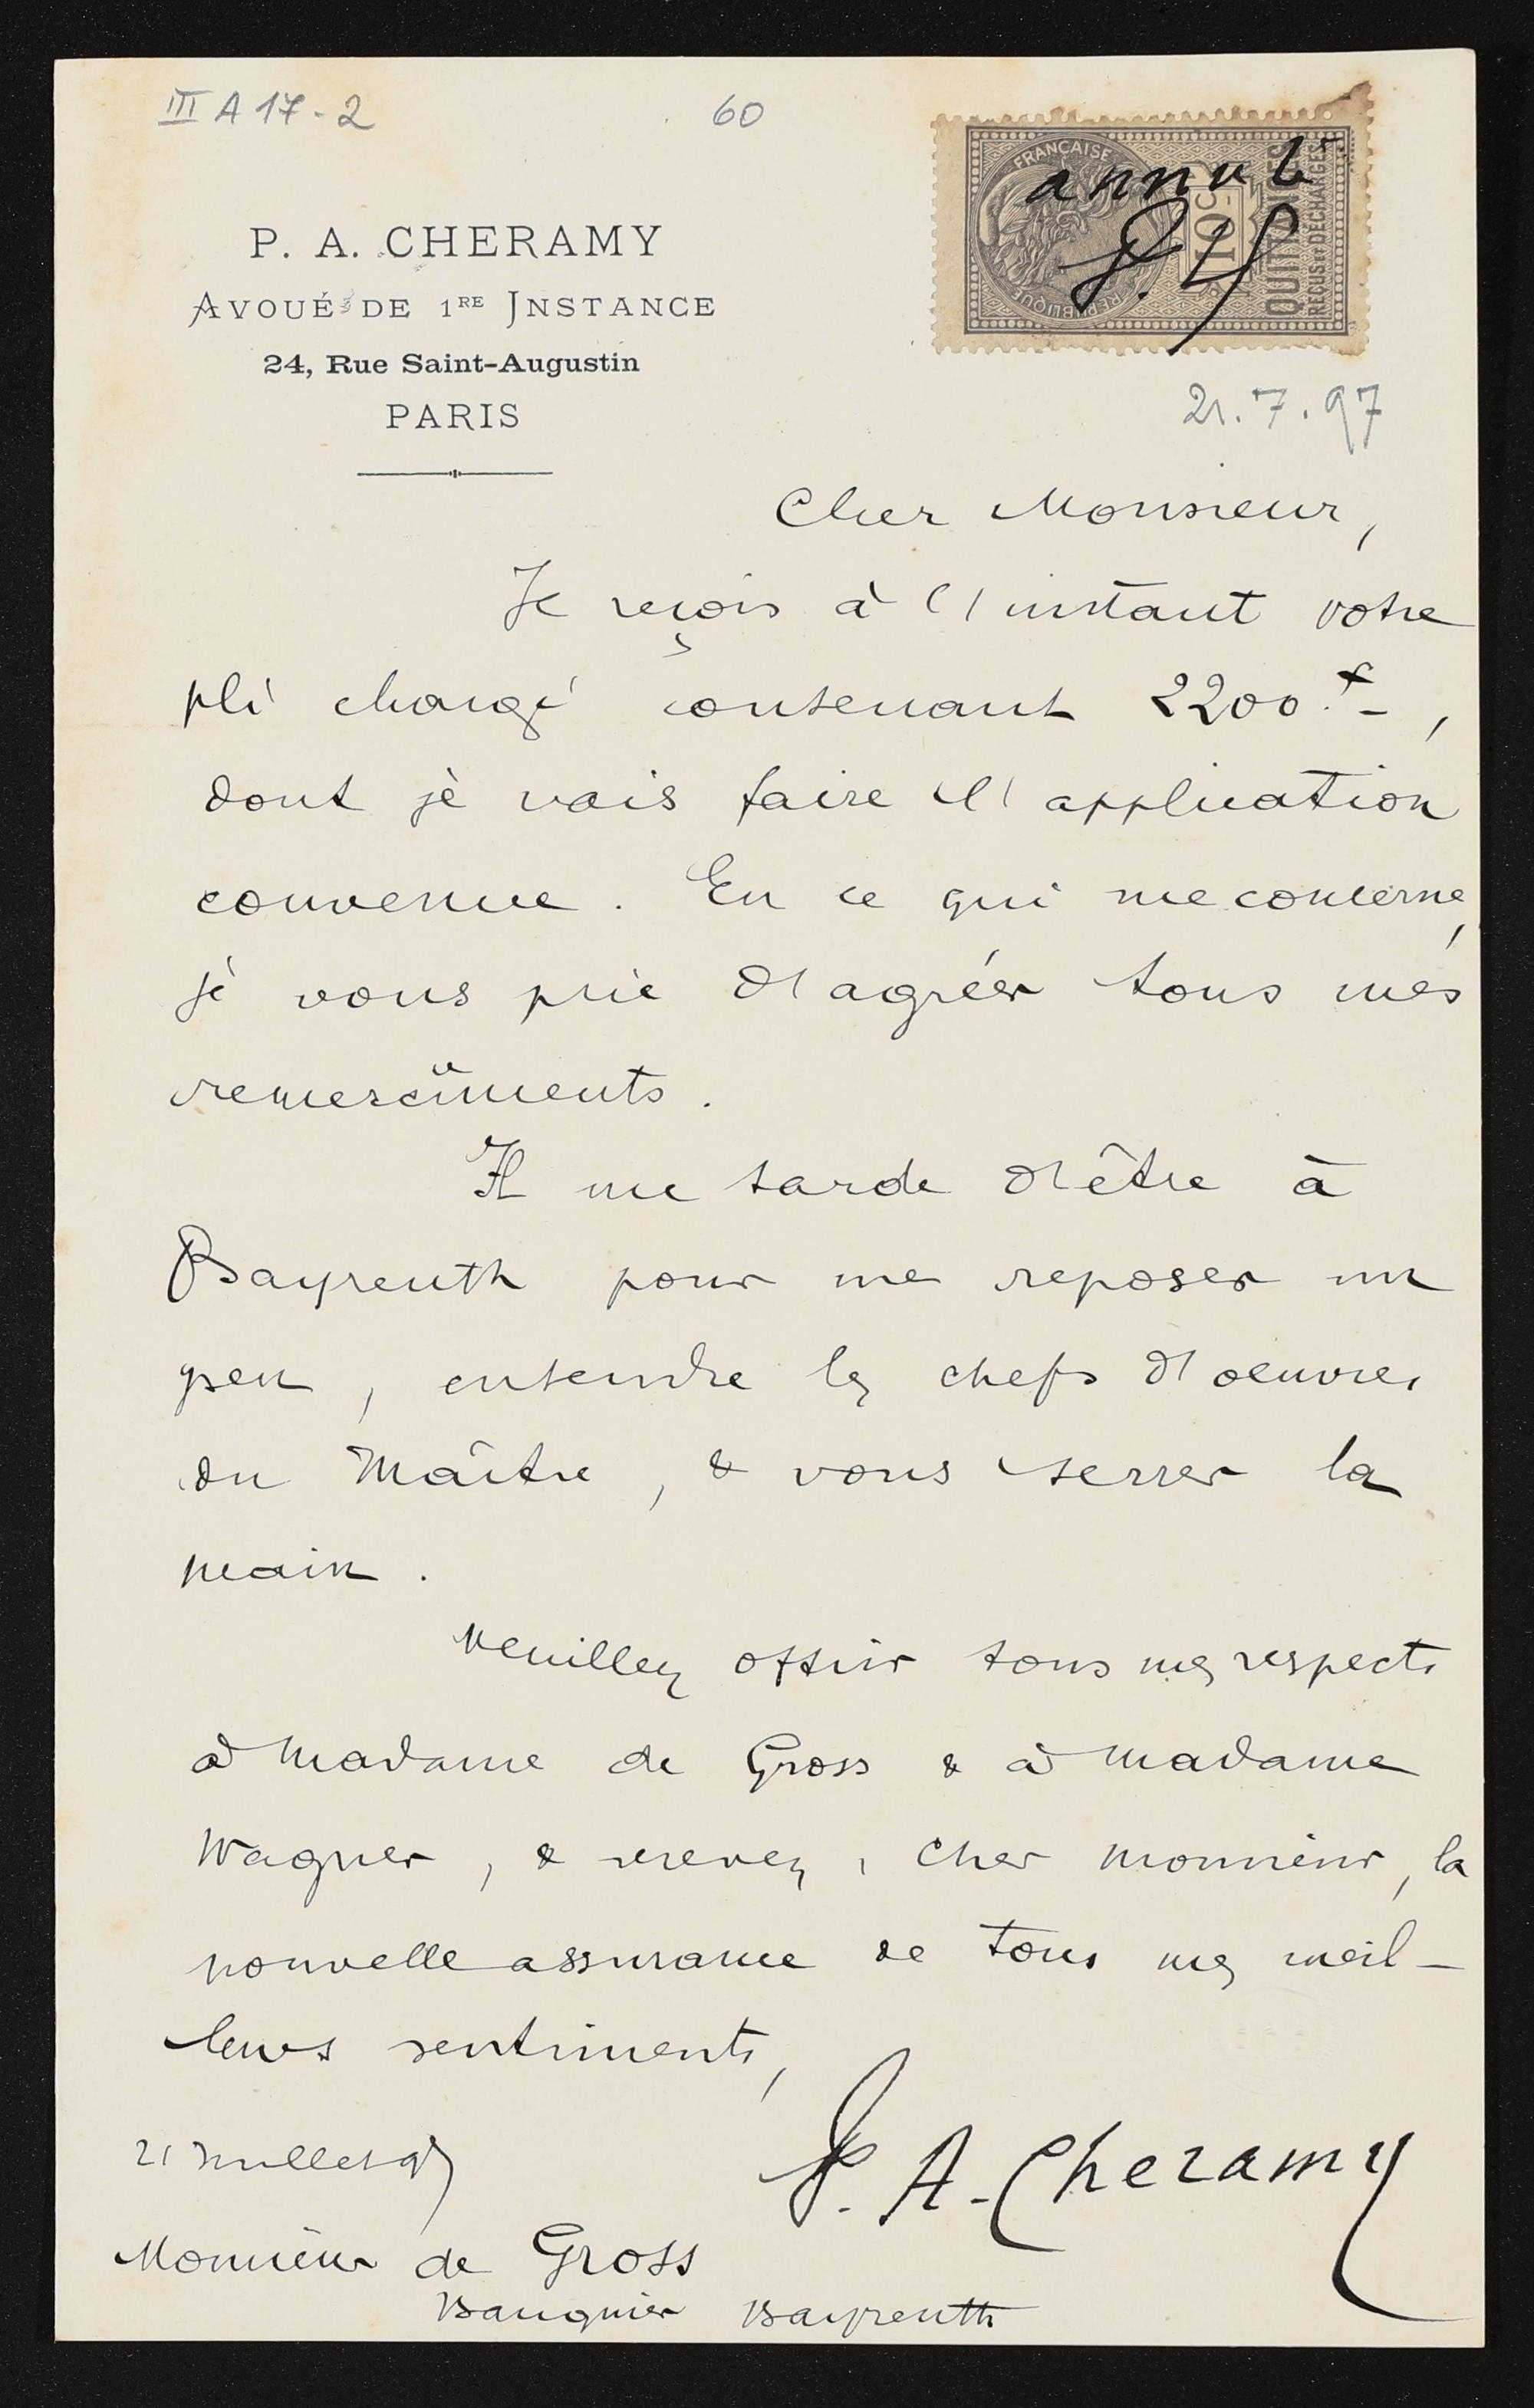 III A 17-2
60
FRANÇAISE
RÉPUBLIQUE
10c
QUITTANCES
REÇUS ET DÉCHARGES
annulé
P. A. CHERAMY
AVOUÉ DE 1RE INSTANCE
24, Rue Saint-Augustin
PARIS
21.7.97
Cher Monsieur,
Je reçois à l'instant votre
pli chargé contenant 2200 f -,
dont je vais faire l'application
convenue. En ce qui me concerne,
je vous prie d'agréer tous mes
remercîments.
Il me tarde d'être à
Bayreuth pour me reposer un
peu, entendre les chefs d'oeuvres
du Maître, & vous serrer la
main.
Veuillez offrir tous mes respects
à Madame de Gross & à Madame
Wagner, & recevez, cher monsieur, la
nouvelle assurance de tous mes meil-
leurs sentiments,
P. A. Cheramy
21 Juillet 97
Monsieur de Gross
Banquier Bayreuth